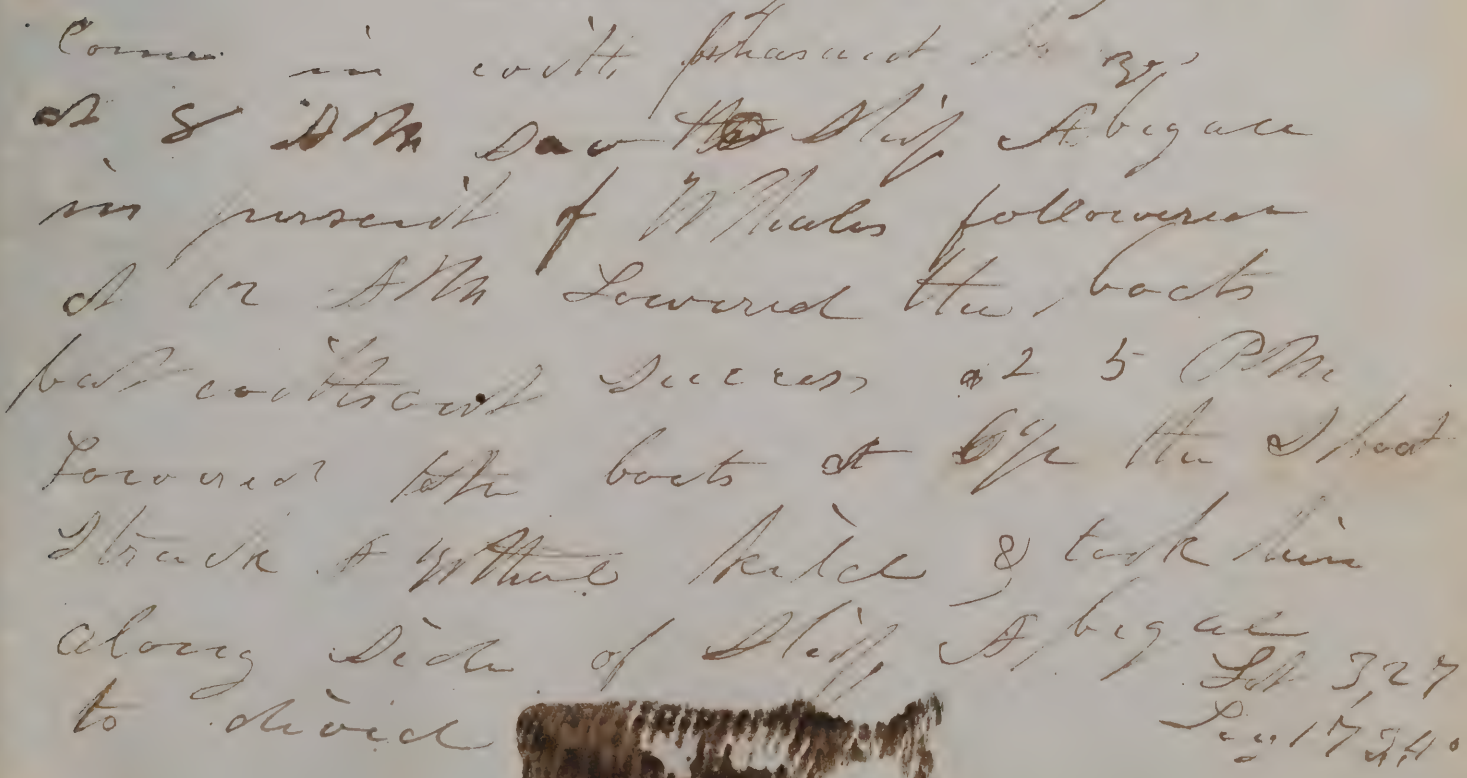 Come in with pleasant
At 8 AM Saw the Ship Abigail
in persuit of Whales followeren
At 12 AM Lowered the boats
but without Success at 5 PM
Lowered the boats at 6 1/2 the S boat
Struck A Whale kiled & took him
along Side of Ship Abigail
to divid
Lat 3,27
Log 17 34°